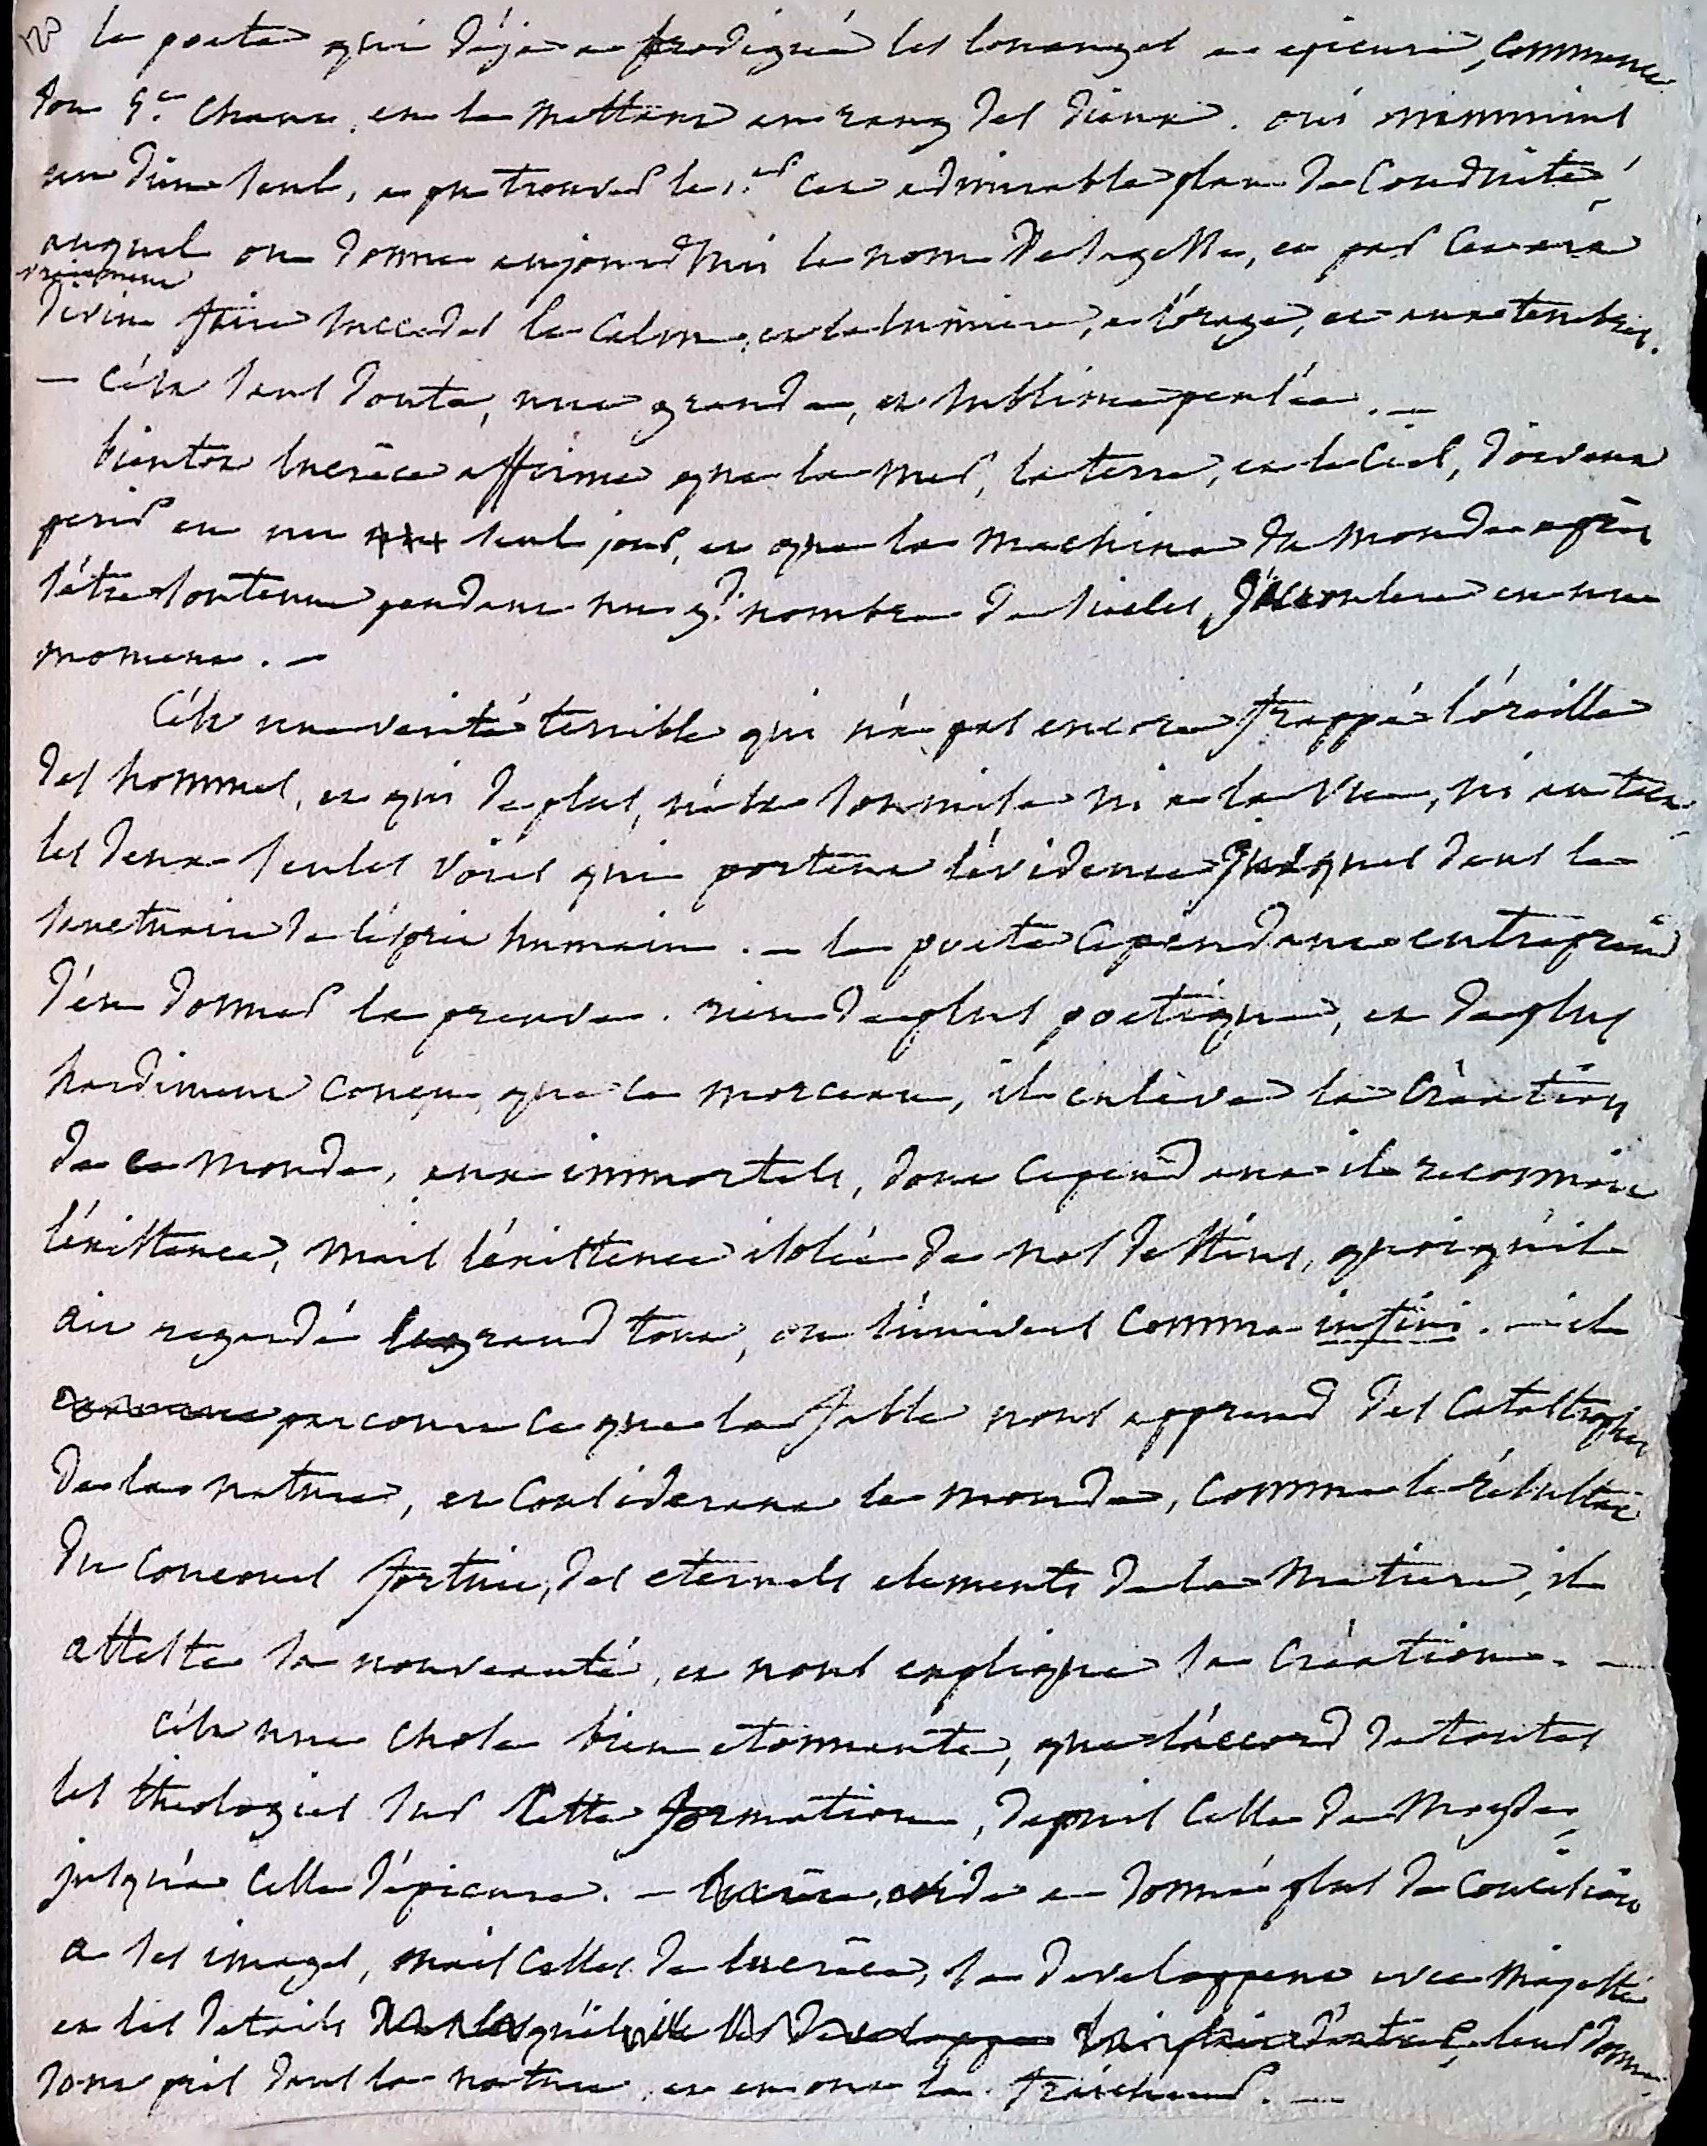 le poete qui déja a prodigué les louanges a epicure, commence
son 5.e chant, en le mettant au rang des dieux. oui memmius
un dieu seul, a pu trouver le 1.er cet admirable plan de conduite
auquel on donne aujourdhui le nom de sagesse, et par cet art
vraiment
divin faire succeder le calme, et la lumiere, a l'orage, et aux tenebres.
— c'est sans doute, une grande, et sublime pensée. —
bientot lucrèce affirme que la mer, la terre, et le ciel, doivent
perir en un seul jour, et que la machine du monde après
s'être soutenue pendant un g.d nombre de siecles, s'écroulera en un
moment. —
C'est une verité terrible qui n'a pas encore frappé l'oreille
des hommes, et qui de plus, n'est soumise ni a la vue, ni au tact
les deux seules voies qui portent l'évidence jusques dans le
sanctuaire de l'esprit humain. — le poete cependant entreprend
d'en donner la preuve. rien de plus poetique, et de plus
hardiment conçu, que ce morceau, il enleve la création
de ce monde, aux immortels, dont cependant il reconnoit
l'existence, mais l'existence isolée de nos destins, quoiqu'il
ait regardé le grand tout, ou l'univers comme infini. — il
parcourt ce que la fable nous apprend des catastrophes
de la nature, et considerant le monde, comme le résultat
du concours fortuit, des eternels elements de la matiere, il
atteste sa nouveauté, et nous explique sa création. —
c'est une chose bien etonnante, que l'accord de toutes
les theologies sur cette formation, depuis celle de Moyse,
jusqu'a celle d'épicure. — ovide a donné plus de concision
a ses images, mais celles de lucrèce, se developpent avec majesté
et les details leur donne
sont pris dans la nature, et en ont la fraicheur. —